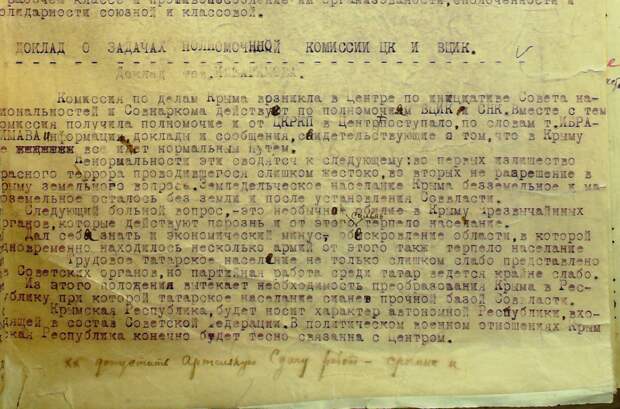 рабочем классе и
солидарности союзной и классовой.
ДОКЛАД О ЗАДАЧАХ ПОЛНОМОЧНОЙ КОМИССИИ ЦК И ВЦИК.
Доклад тов. ИБРАГИМОВА.
Комиссия по делам Крыма возникла в центре по инициативе Совета на-
циональностей и Совнаркома действует по полномочиям ВЦИК и СНК. Вместе с тем
комиссия получила полномочие и от ЦКРКП в Центр поступало, по словам т. ИБРА-
ГИМОВА информации, доклады и сообщения, свидетельствующие о том, что в Крыму
не все идет нормальным путем.
Ненормальности эти сводятся к следующему: во первых излишество
красного террора проводившегося слишком жестоко, во вторых не разрешение в
Крыму земельного вопроса. Земледельческое население Крыма безземельное и ма-
лоземельное осталось без земли и после установления Совласти.
Следующий больной вопрос, -это необычно в Крыму Чрезвычайных
органов, которые действуют порознь и от этого терпело население.
Дал себя знать и экономический минус, обескровление области, в которой
одновременно находилось несколько армий от этого также терпело население
Трудовое татарское население не только слишком слабо представлено
в Советских органов, но партийная работа среди татар ведется крайне слабо.
Из этого положения вытекает необходимость преобразования Крыма в Рес-
публику, при которой татарское население станет прочной базой Совласти.
Крымская Республика, будет носит характер автономной Республики, вхо-
дящей в состав Советской Федерации. В политическом военном отношениях Крым
ская Республика конечно будет тесно связанна с центром.
допустить Артельную Сдачу работ -